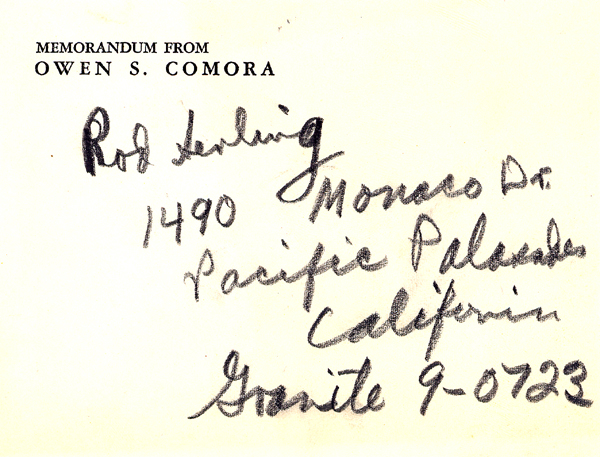 MEMORANDUM FROM
OWEN S. COMORA
Rod Serling
1490 Monaco Dr.
Pacific Palasades
California
Granite 9-0723